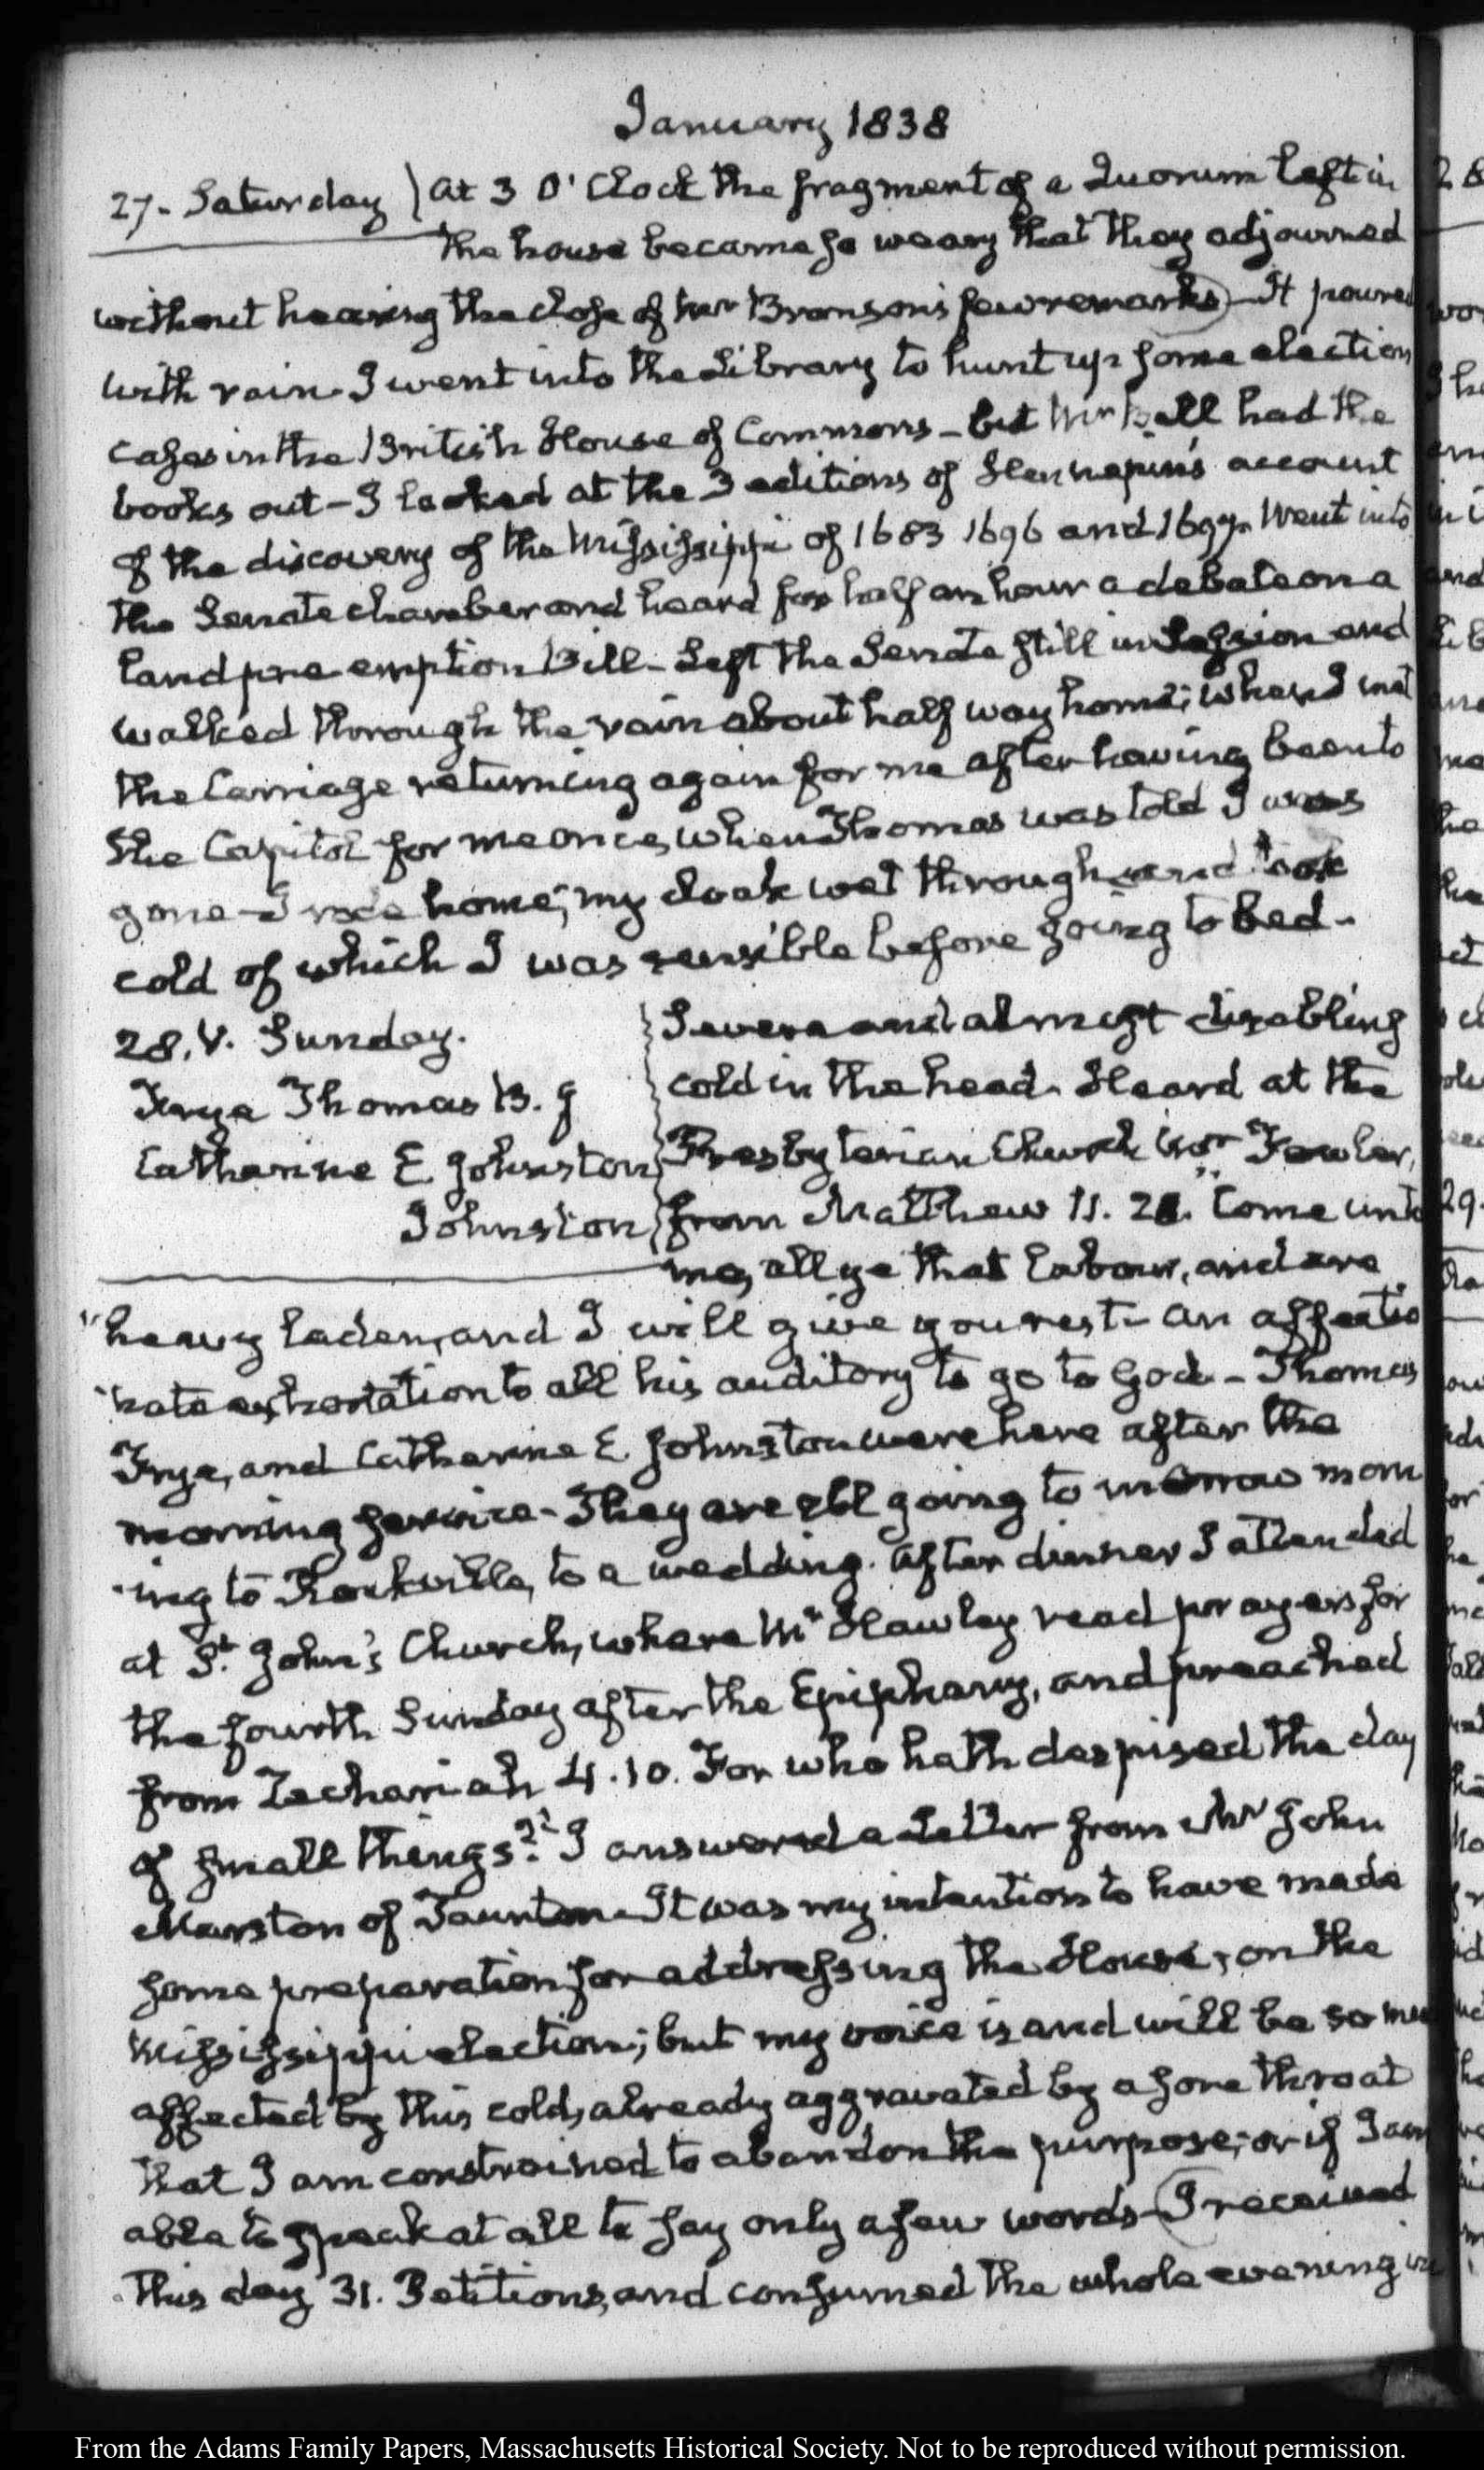 January 1838
27. Saturday } At 3 O'Clock the fragment of a Quorum left in
the house became so weary that they adjourned
without hearing the close of Mr Bronson's few remarks) - It poured
with rain. I went into the Library to hunt up some election
cases in the British House of Commons - but Mr Bell had the
books out - I looked at the 3 editions of Hennepin's account
of the discovery of the Mississippi of 1683 1696 and 1697. Went into
the Senate chamber and heard for half an hour a debate on a
land pre emption Bill - Left the Senate still in Session and
walked through the rain about half way home; where I met
the Carriage returning again for me after having been to
the Capitol for me once, when Thomas was told I was
gone - I rode home, my cloak wet through and took
cold of which I was sensible before going to bed -
28. V. Sunday. } Severe and almost disabling
Frye Thomas B. J } cold in the head. Heard at the
Catharine E Johnston } Presbyterian Church Mr Fowler,
Johnston } from Matthew 11. 28. "Come unto
me, all ye that labour, and are
"heavy laden, and I will give you rest - An affectio
"nate exhortation to all his auditory to go to God - Thomas
Frye, and Catharine E. Johnston were here after the
morning service - They are all going to morrow morn
-ing to Rockville, to a wedding. After dinner I attended
at St. John's Church, where Mr Hawley read prayers for
the fourth Sunday after the Epiphany, and preached
from Zechariah 4.10. For who hath despised the day
of small things?" I answered a Letter from Mr John
Marston of Taunton - It was my intention to have made
some preparation for addressing the House, on the
Mississippi election; but my voice is and will be so much
affected by this cold, already aggravated by a sore throat
that I am constrained to abandon the purpose; or if I am
able to speak at all to say only a few words - (I received
this day 31. Petitions, and consumed the whole evening in
From the Adams Family Papers, Massachusetts Historical Society. Not to be reproduced without permission.